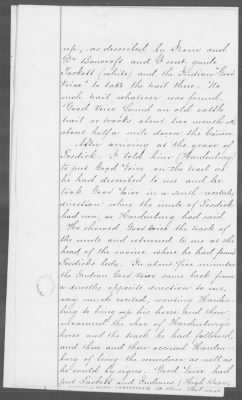 up, as described by Irwin and
Geo Bancroft and I sent guide
Sackett (white) and the Indian "Good
Voice" to take the trail there. No
such trail whatever was found.
Good Voice found an old cattle
trail or tracks about two months old
about half a mile down the Cañon.
After arriving at the grave of
Tosdick. I told him (Hardenburg)
to put Good Voice on the trail as
he had described to me and he
took Good Voice in a south westerly
direction where the mule of Tosdick
had run, as Hardenburg had said.
He showed Good Voice the track of
the mule and returned to me at the
head of the ravine where he had found
Tosdicks body. In about five minutes
the Indian Good Voice came back from
a directly opposite direction to me,
very much excited, causing Harden-
burg to bring up his horse and then
measured the shoe of Hardenburgs
horse and the track he had followed,
and then and there accused Harden-
burg of being the murderer as well as
he could by signs. Good Voice had
put Sackett and Frederick (High Bear)